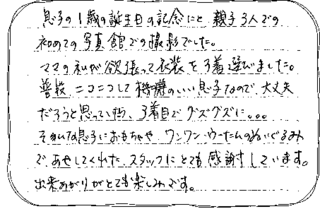 息子の1歳の誕生日の記念にと親子3人での
初めての写真館での撮影でした。
ママの私が欲張って衣装を3着選びました。
普段ニコニコして機嫌のいい息子なので大丈夫
だろうと思っていたら、3着目でグズグズに。。。
そんな息子におもちゃや ワンワン・うーたんのぬいぐるみ
であやしてくれた スタッフにとても感謝しています。
出来あがりがとても楽しみです。